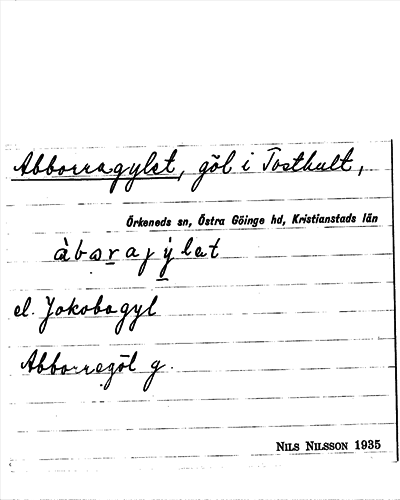 Abborragylet, göl i Tosthult,
Örkeneds sn, Östra Göinge hd, Kristianstads län
àbоrajẏlет
el. Jakobagyl
Abborregöl g.
NILS NILSSON 1935